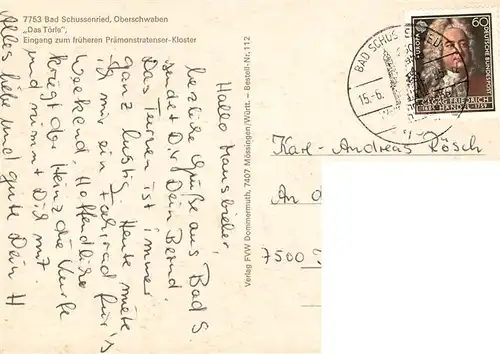 7753 Bad Schussenried, Oberschwaben
„Das Törle",
Eingang zum früheren Prämonstratenser-Kloster
Hallo Hausbieber,
herzliche Grüße aus Bad S
sendet Dir Dein Bernd.
Das Turnen ist immer
ganz lustig. Heute miete
ich mir ein Fahrrad für's
Weekend. Hoffentlich
kriegt der Heinz die Kurfe
und nimmt Dich mit.
Alles liebe und gute Dein H
Verlag FVW Dommermuth, 7407 Mössingen/Württ. – Bestell-Nr. 112
BAD SCHUS
15.-6.
60
DEUTSCHE BUNDESPOST
GEORG FRIEDRICH
HÄNDEL 1759
Karl-Andreas Rösch
An
7500